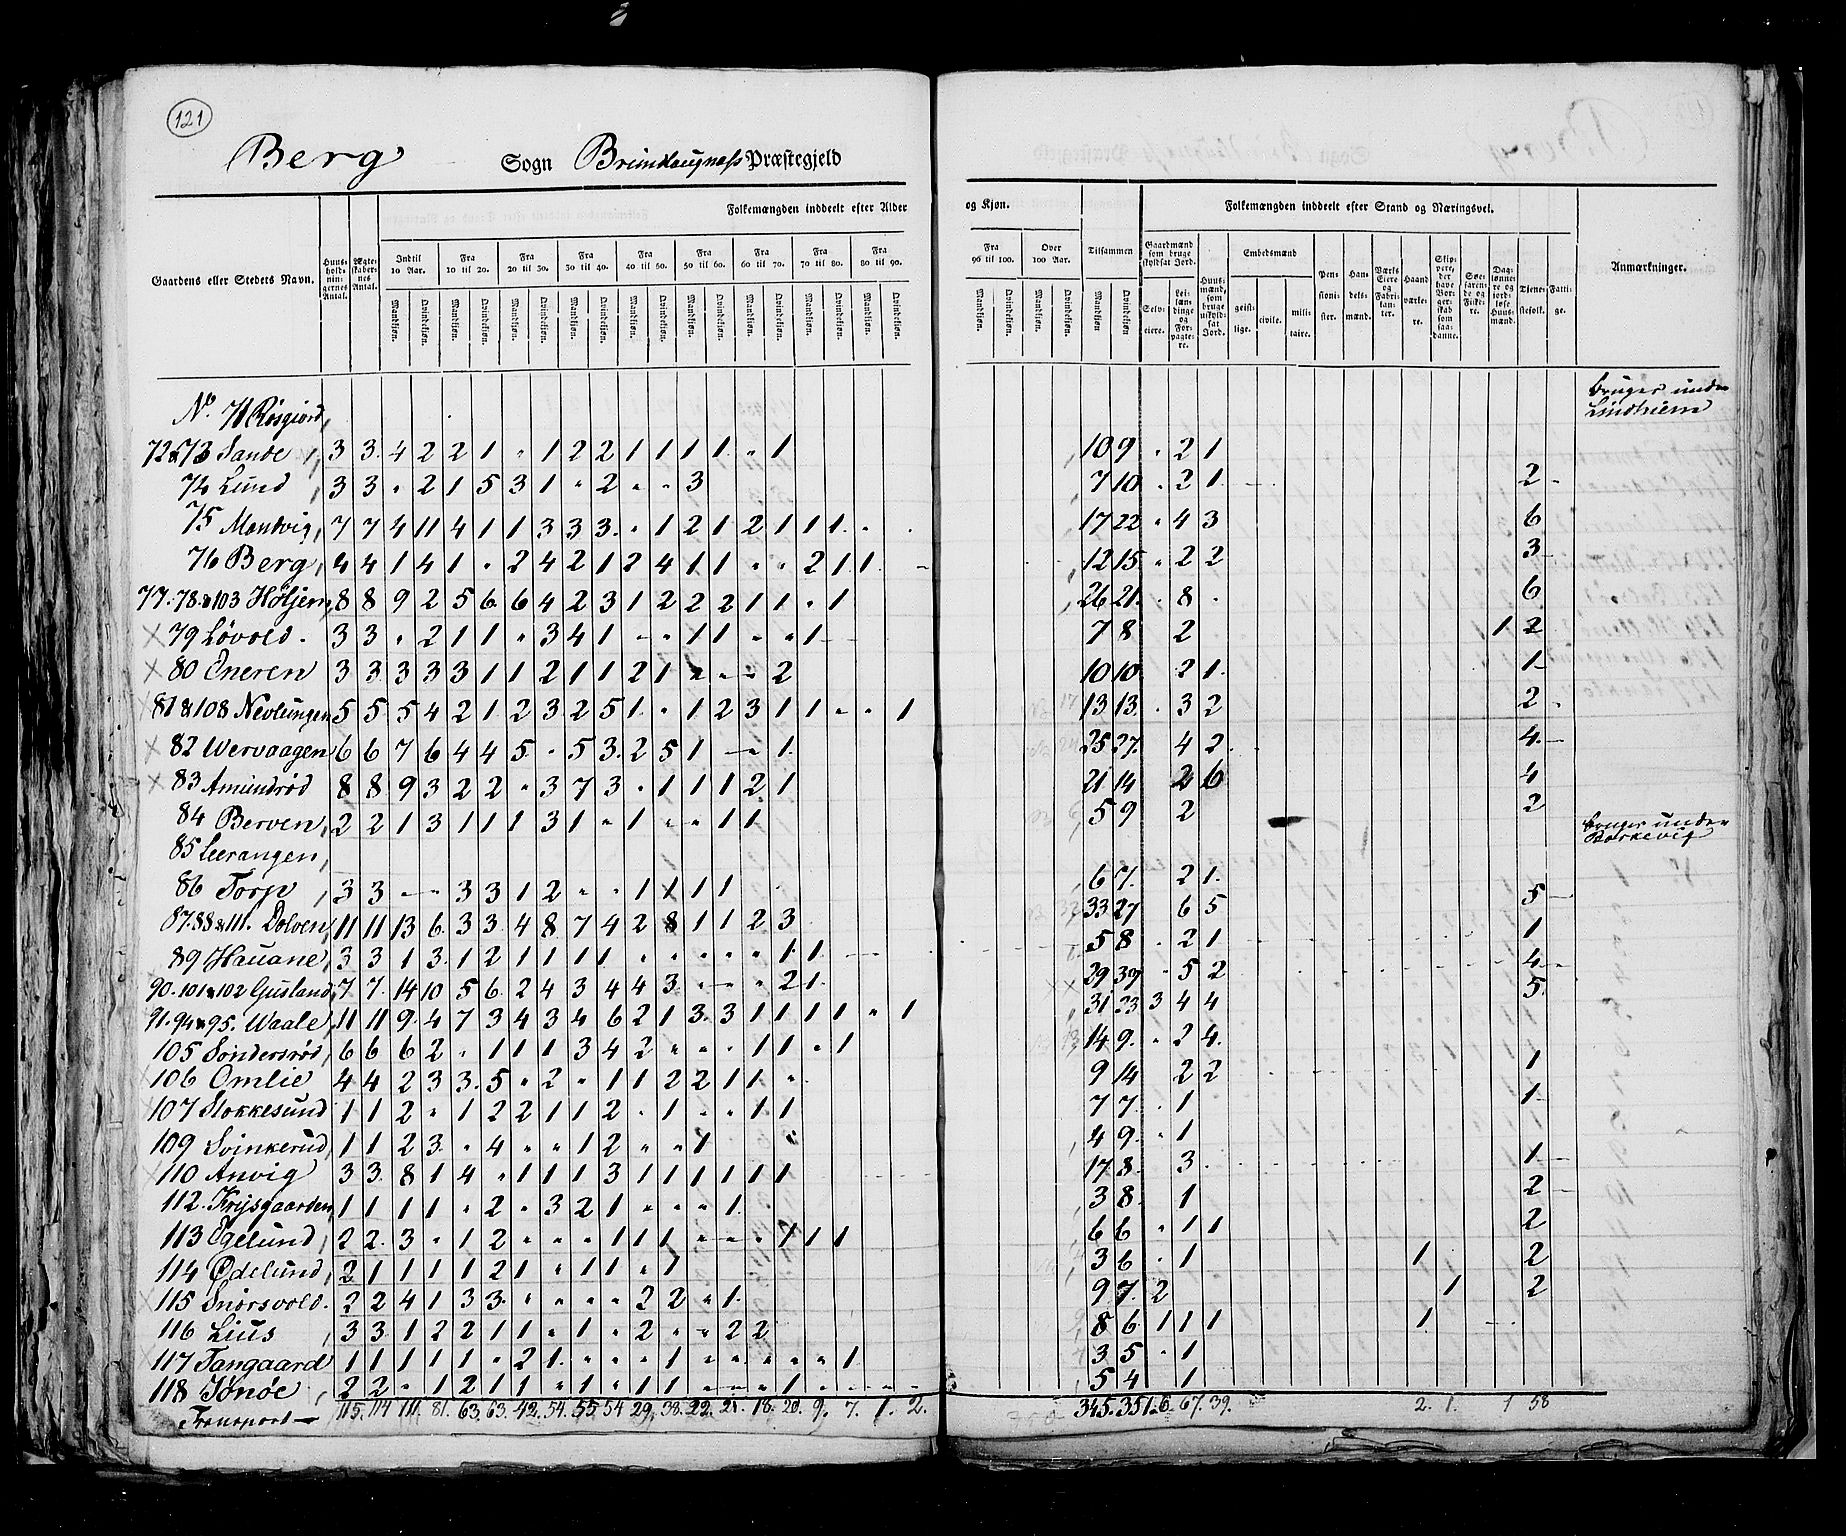 121
Berg Sogn Brunlaugnæss Præstegjeld
Folkemængden inddeelt efter Alder og Kjøn.
Folkemængden inddeelt efter Stand og Næringsvei.
Gaardens eller Stedets Navn.
Huus-holdnin-gernes Antal.
Ægte-skaber-nes Antal.
Indtil 10 Aar.
Fra 10 til 20.
Fra 20 til 30.
Fra 30 til 40.
Fra 40 til 50.
Fra 50 til 60.
Fra 60 til 70.
Fra 70 til 80.
Fra 80 til 90.
Fra 90 til 100.
Over 100 Aar.
Tilsammen
Mandkjøn. Qvindekjøn.
Gaardmænd som bruge skyldsat Jord.
Selv-eiere.
Lei-læn-dinge og For-pagte-re.
Huus-mænd, som bruge uskyld-sat Jord.
Embedsmænd
geist-lige. civile. mili-taire.
Pen-sioni-ster.
Han-dels-mænd.
Værks Eiere og Fabri-kan-ter.
Haand-værke-re.
Skip-pere, der have Bor-ger-skab som saa-danne.
Søe-farende og Fiske-re.
Dag-lønne-re og jord-løse Huus-mænd.
Tjene-stefolk.
Fatti-ge.
Anmærkninger.
No. 71 Røsgiord, bruges under Lindhiem
72&73 Sande, 3 3 4 2 2 1 " 1 2 2 1 1 1 1 " 1 10 9 " 2 1
74 Lund, 3 3 " 2 1 5 3 1 " 2 " " 3 7 10 " 2 1 2
75 Mandvig, 7 7 4 11 4 1 1 3 3 3 " 1 2 1 2 1 1 1 17 22 " 4 3 6
76 Berg, 4 4 1 4 1 " 2 4 2 1 2 4 1 1 " " 2 1 1 12 15 " 2 2 3
77.78.&103 Høljem, 8 8 9 2 5 6 6 4 2 3 1 2 2 2 1 1 " 1 26 21 " 8 6
79 Løvold. 3 3 " 2 1 1 " 3 4 1 " " 1 1 " " 1 7 8 2 1 2
80 Eneren 3 3 3 3 3 1 1 2 1 1 2 1 " " " 2 10 10 2 1 1
81&108 Nevlungen 5 5 5 4 2 1 2 3 2 5 1 " 1 2 3 1 1 " " 1 13 13 3 2 2
82 Wervaagen 6 6 7 6 4 4 5 " 5 3 2 5 1 " " 1 25 27 4 2 4
83 Amundrød 8 8 9 3 2 2 " 3 7 3 " 1 1 1 2 1 21 14 2 6 4
84 Berven, 2 2 1 3 1 1 1 3 1 " 1 " " 1 1 5 9 2 2
85 Leerangen, bruges under Barkevig
86 Torp, 3 3 " " 3 3 1 2 " " 1 1 1 1 6 7 2 1 5
87.88&111. Dolven, 11 11 13 6 3 3 4 8 7 4 2 8 1 1 2 3 33 27 6 5 1
89 Hauane, 3 3 1 3 1 2 1 1 1 1 " " " " " 1 1 5 8 2 1 4
90.101&102 Gusland, 7 7 14 10 5 6 2 4 3 4 4 3 " " " 2 1 29 5 2 5
91.94&95. Waale, 11 11 9 4 7 3 4 3 4 6 2 1 3 3 1 1 1 1 " 1 31 23 3 4 4
105 Søndersrød, 6 6 6 2 " 1 1 1 3 4 2 " " " 1 1 " 1 14 9 " 2 4
106 Omlie 4 4 2 3 3 5 " 2 " 1 1 2 2 1 1 " 9 14 2 2 1
107 Stokkesund 1 1 2 " 1 2 2 1 1 2 " 1 " " 1 1 7 7 1 1
109 Svinkerud, 1 1 2 3 " 4 " " 1 2 " " 1 4 9 " 1
110 Anvig 3 3 8 1 4 " 1 1 1 3 1 1 1 1 1 1 17 8 3 1
112. Frysgaarden, 1 1 1 1 " 2 " 3 2 1 " " " 1 3 8 1 2
113 Egelund, 2 2 3 " 1 2 " " " 1 1 1 " " " 1 1 1 6 6 " 1 1 2
114 Ødelund, 2 1 1 1 1 2 1 " 1 1 " 1 3 6 " 1 1 2
115 Snørsvold. 2 2 4 1 3 3 " " " " 2 2 " 1 9 7 2 1 2
116 Lius, 3 3 1 2 2 1 1 " 1 " 2 " " 2 2 8 6 1 1 1 1
117 Tangaard 1 1 1 1 1 " 2 1 " " " 1 " " " " " 1 3 5 " 1
118 Jønøe, 2 2 " 1 2 1 1 " 1 " 1 1 " " " 1 5 4 1
Transport 115. 114 111. 81. 63. 63. 42. 54. 55 54 29. 38. 22. 21. 18. 20. 9. 7. 1. 2. 345. 351. 6. 67. 39. 2. 1. 1 58